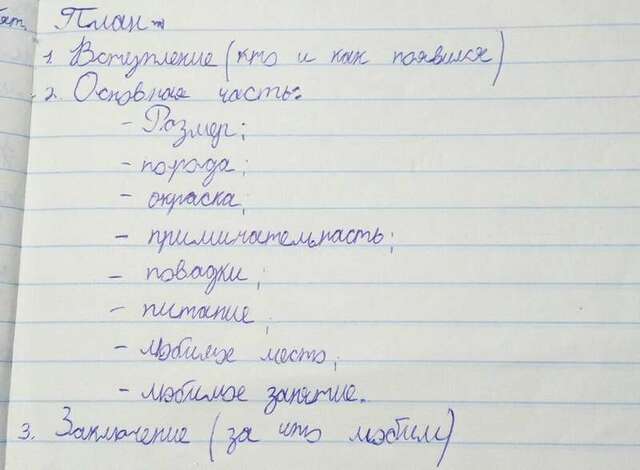 План
1. Вступление (кто и как появился)
2. Основная часть:
- Размер;
- порода;
- окраска;
- приминательнасть;
- повадки;
- питание;
- любимое место;
- любимое занятие.
3. Заключение (за что любим)